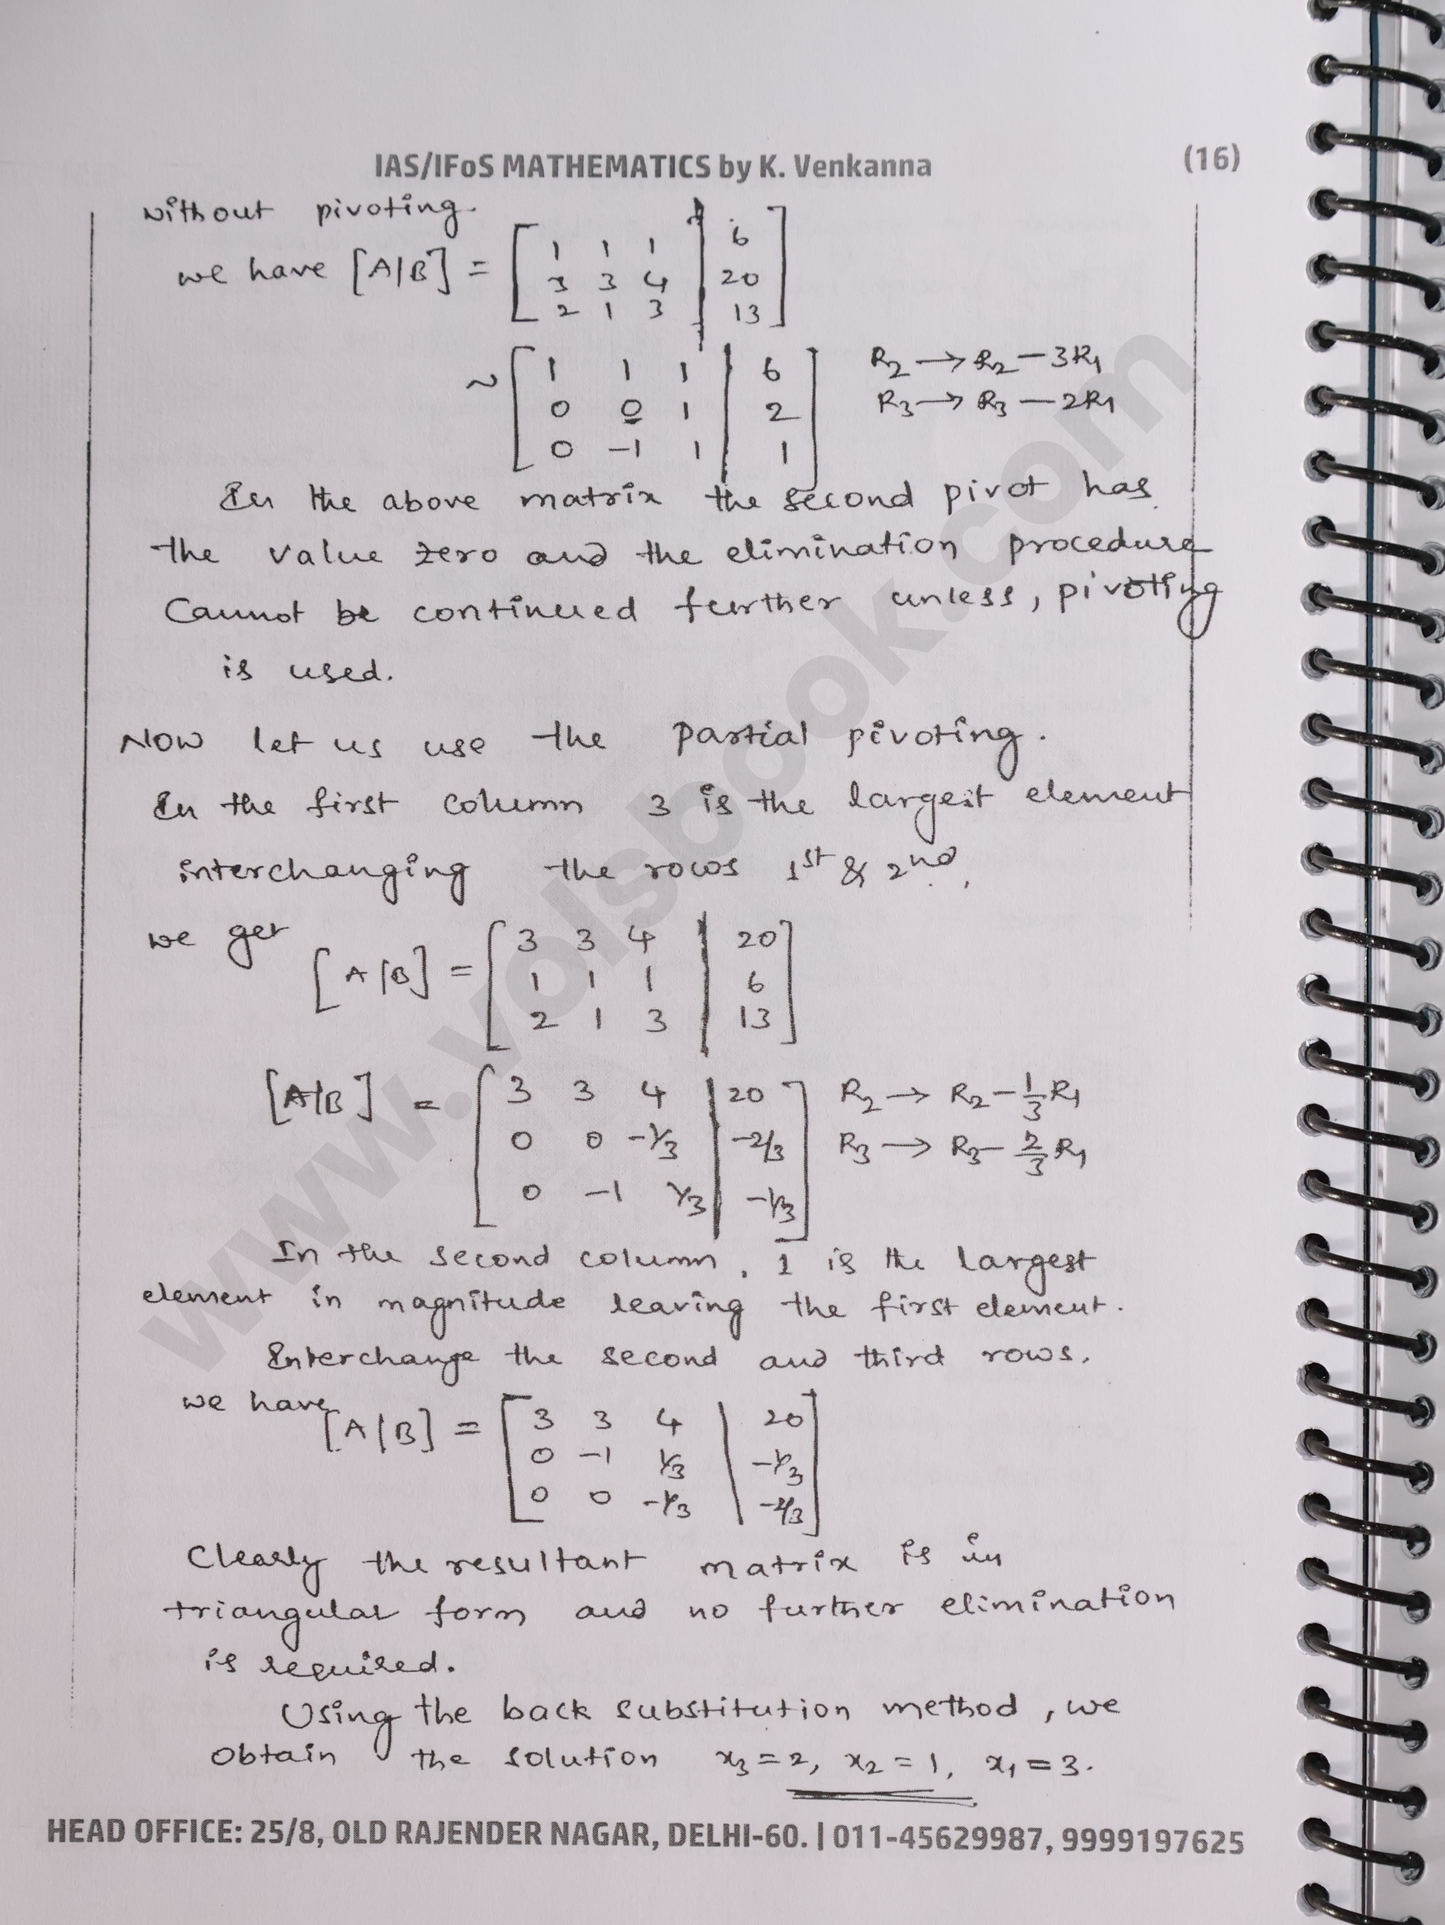 IAS/IFoS MATHEMATICS by K. Venkanna (16)
without pivoting.
we have [A|B] = [ 1 1 1 | 6
3 3 4 | 20
2 1 3 | 13 ]
~ [ 1 1 1 | 6 R2 → R2 − 3R1
0 0 1 | 2 R3 → R3 − 2R1
0 −1 1 | 1 ]
In the above matrix the second pivot has
the value zero and the elimination procedure
cannot be continued further unless, pivoting
is used.
Now let us use the partial pivoting.
In the first column 3 is the largest element
interchanging the rows 1st & 2nd.
we get
[A|B] = [ 3 3 4 | 20
1 1 1 | 6
2 1 3 | 13 ]
[A|B] = [ 3 3 4 | 20 R2 → R2 − 1/3 R1
0 0 −1/3 | −2/3 R3 → R3 − 2/3 R1
0 −1 1/3 | −1/3 ]
In the second column, 1 is the largest
element in magnitude leaving the first element.
Interchange the second and third rows.
we have
[A|B] = [ 3 3 4 | 20
0 −1 1/3 | −1/3
0 0 −1/3 | −2/3 ]
Clearly the resultant matrix is in
triangular form and no further elimination
is required.
Using the back substitution method, we
obtain the solution x3 = 2, x2 = 1, x1 = 3.
HEAD OFFICE: 25/8, OLD RAJENDER NAGAR, DELHI-60. | 011-45629987, 9999197625
www.yolsbook.com